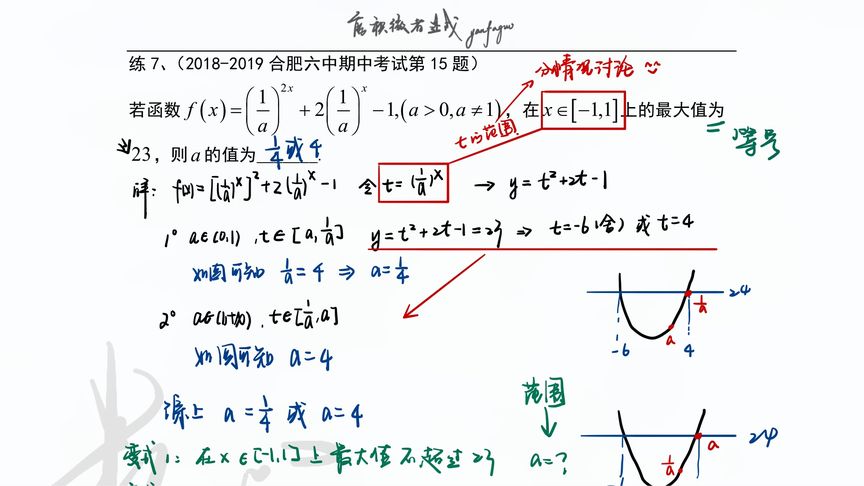 厚积微者速成 yanfaguo
练 7、(2018-2019 合肥六中期中考试第 15 题)
分情况讨论
若函数 f(x)=(1/a)^{2x}+2(1/a)^x-1,(a>0,a≠1), 在 x∈[-1,1] 上的最大值为
t的范围
= 等号
23，则 a 的值为 1/4或4 .
解: f(x)=[(1/a)^x]²+2(1/a)^x-1 令 t=(1/a)^x → y=t²+2t-1
1° a∈(0,1) , t∈[a,1/a] y=t²+2t-1=23 ⇒ t=-6(舍) 或 t=4
如图可知 1/a=4 ⇒ a=1/4
24
1/a
a
-6 4
2° a∈(1,+∞) , t∈[1/a,a]
如图可知 a=4
综上 a=1/4 或 a=4
范围
↓
a=?
24
a
1/a
变式1: 在x∈[-1,1]上最大值不超过23